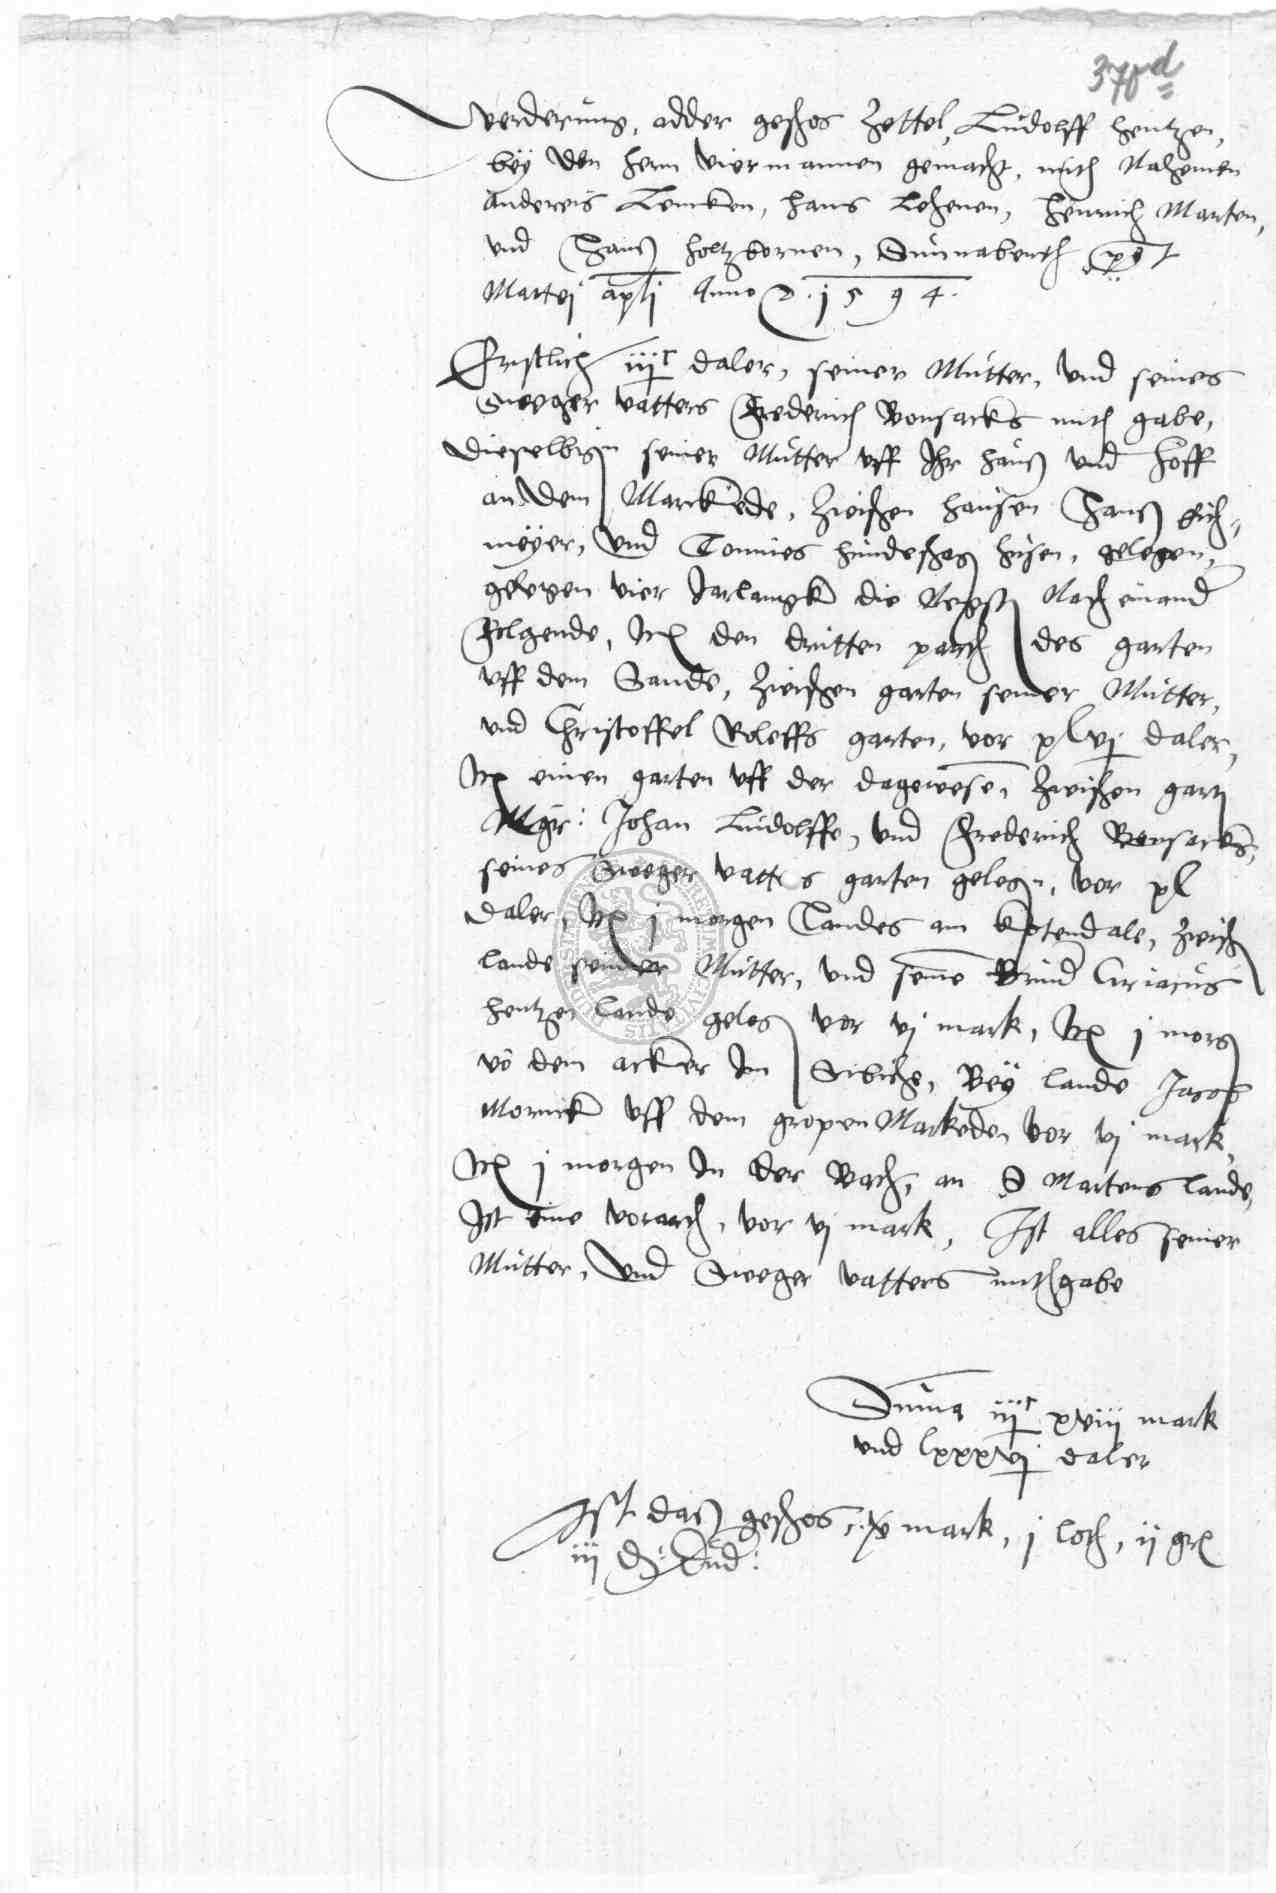 37 d
Werderung, adder geschos Zettel, Ludolff Hentzen,
bey den Hern viermannen gemacht, mith Nahemen
Andereis Lemken, Hans Lohenen, Henrich Marten,
und Hans Holtzbornen, Sunnabenth post
Mattei apli Anno D. 1594.
Erstlich iijc daler, seiner Mutter, und seines
Sweger vatters Frederich Bonsacks mith gabe,
dieselbigen seiner Mutter uff Ihr Haus und Hoff
an dem Marckede, Zwischen Hausen Hans Eich-
meyer, und Tonnies Hundeshagen Husen, gelegen,
gelegen vier Jarlangk die Negsten Nach einander
Folgende, Item den dritten parth des garten
uff dem Sande, Zwischen garten seiner Mutter,
und Christoffel Roleffs garten, vor xlvj daler,
Item einen garten uff der dagewesen, Zwischen garten
Mgr: Johan Ludolffe, und Frederich Bonsacks,
seines Sweger vatters garten gelegen, vor xl
daler, Item j morgen Landes am Kotendale, Zwischen
lande seiner Mutter, und seine Bruder Ciriacus
Hentzen lande gelegen vor vj mark, Item j morgen
vo dem acker Im Bey lande Jacob
Mornick uff dem gropen Markeden vor vj mark,
Item j morgen In der Bach, an S Martens lande,
Ist eine vorarth, vor vj mark, Ist alles seiner
Mutter, und Sweger vatters mithgabe
Suma iijc xviij mark
und lxxxvj daler
Ist das geschos, mark, j loth, ij gr
iij d: